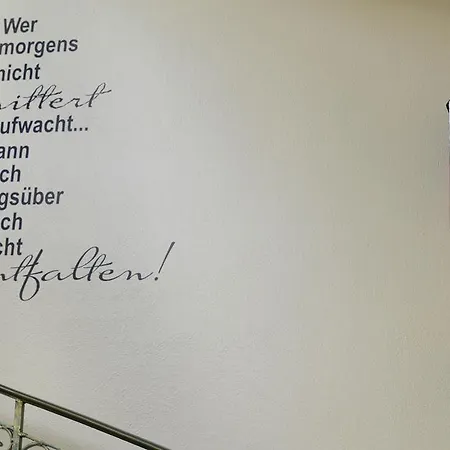 Wer
morgens
nicht
nittert
ufwacht...
ann
ch
gsüber
ch
cht
ntfalten!